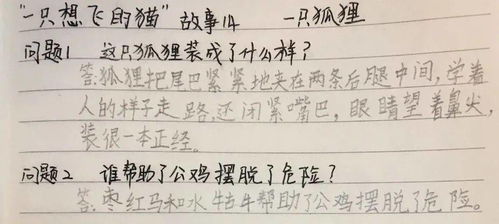 "一只想飞的猫"故事14 一只狐狸
问题1 这只狐狸装成了什么样?
答:狐狸把尾巴紧紧地夹在两条后腿中间,学着
人的样子走路,还闭紧嘴巴,眼睛望着鼻尖,
装很一本正经。
问题2 谁帮助了公鸡摆脱了危险?
答:枣红马和水牯牛帮助了公鸡摆脱了危险。